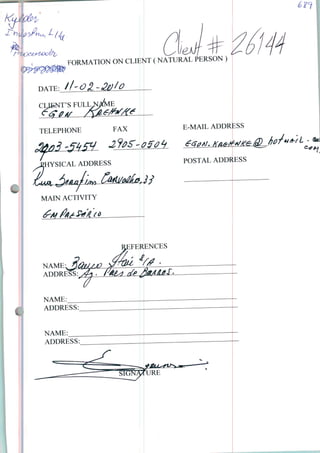 689
Client # 26144
FORMATION ON CLIENT ( NATURAL PERSON )
DATE: 11-02-2010
CLIENT'S FULL NAME
EGON KAEHNKE
TELEPHONE FAX E-MAIL ADDRESS
2903-5454 2905-0504 EGON.KAEHNKE@hotmail.
com
PHYSICAL ADDRESS POSTAL ADDRESS
Rua Serafim Carvalho, 33
MAIN ACTIVITY
EMPRESÁRIO
REFERENCES
NAME: Banco S/A.
ADDRESS: Av. Paes de Barros.
NAME:
ADDRESS:
NAME:
ADDRESS:
SIGNATURE